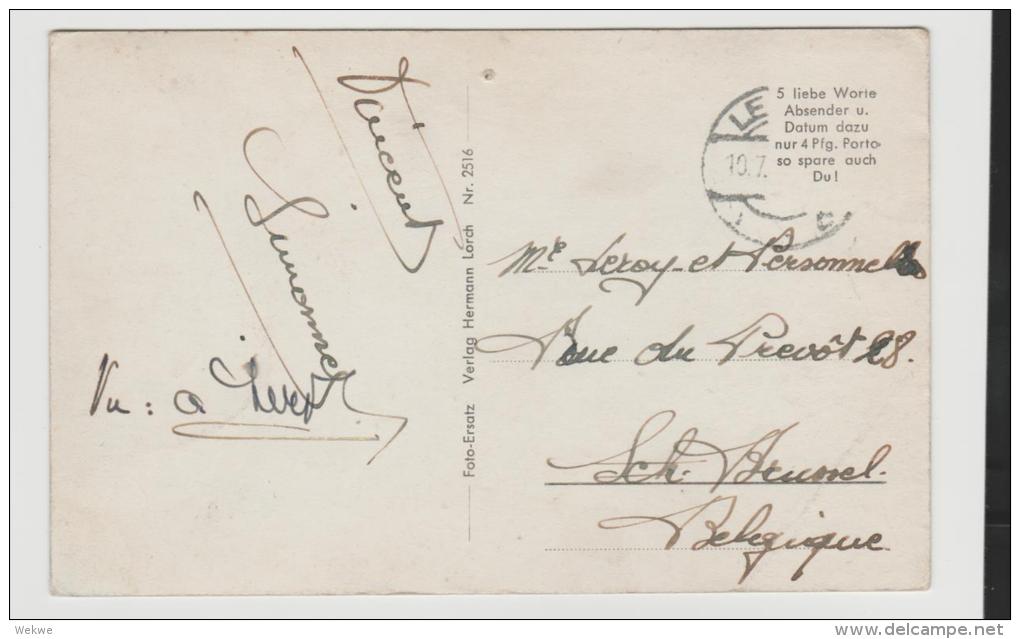 Vincent
Simonne
Vu : à
Foto-Ersatz Verlag Hermann Lorch Nr. 2516
5 liebe Worte
Absender u.
Datum dazu
nur 4 Pfg. Porto
so spare auch
Du!
LE
10.7.
Me Leroy et Personnel
Rue du Prevôt 28.
Sch. Brussel.
Belgique
Wekwe
delcampe.net